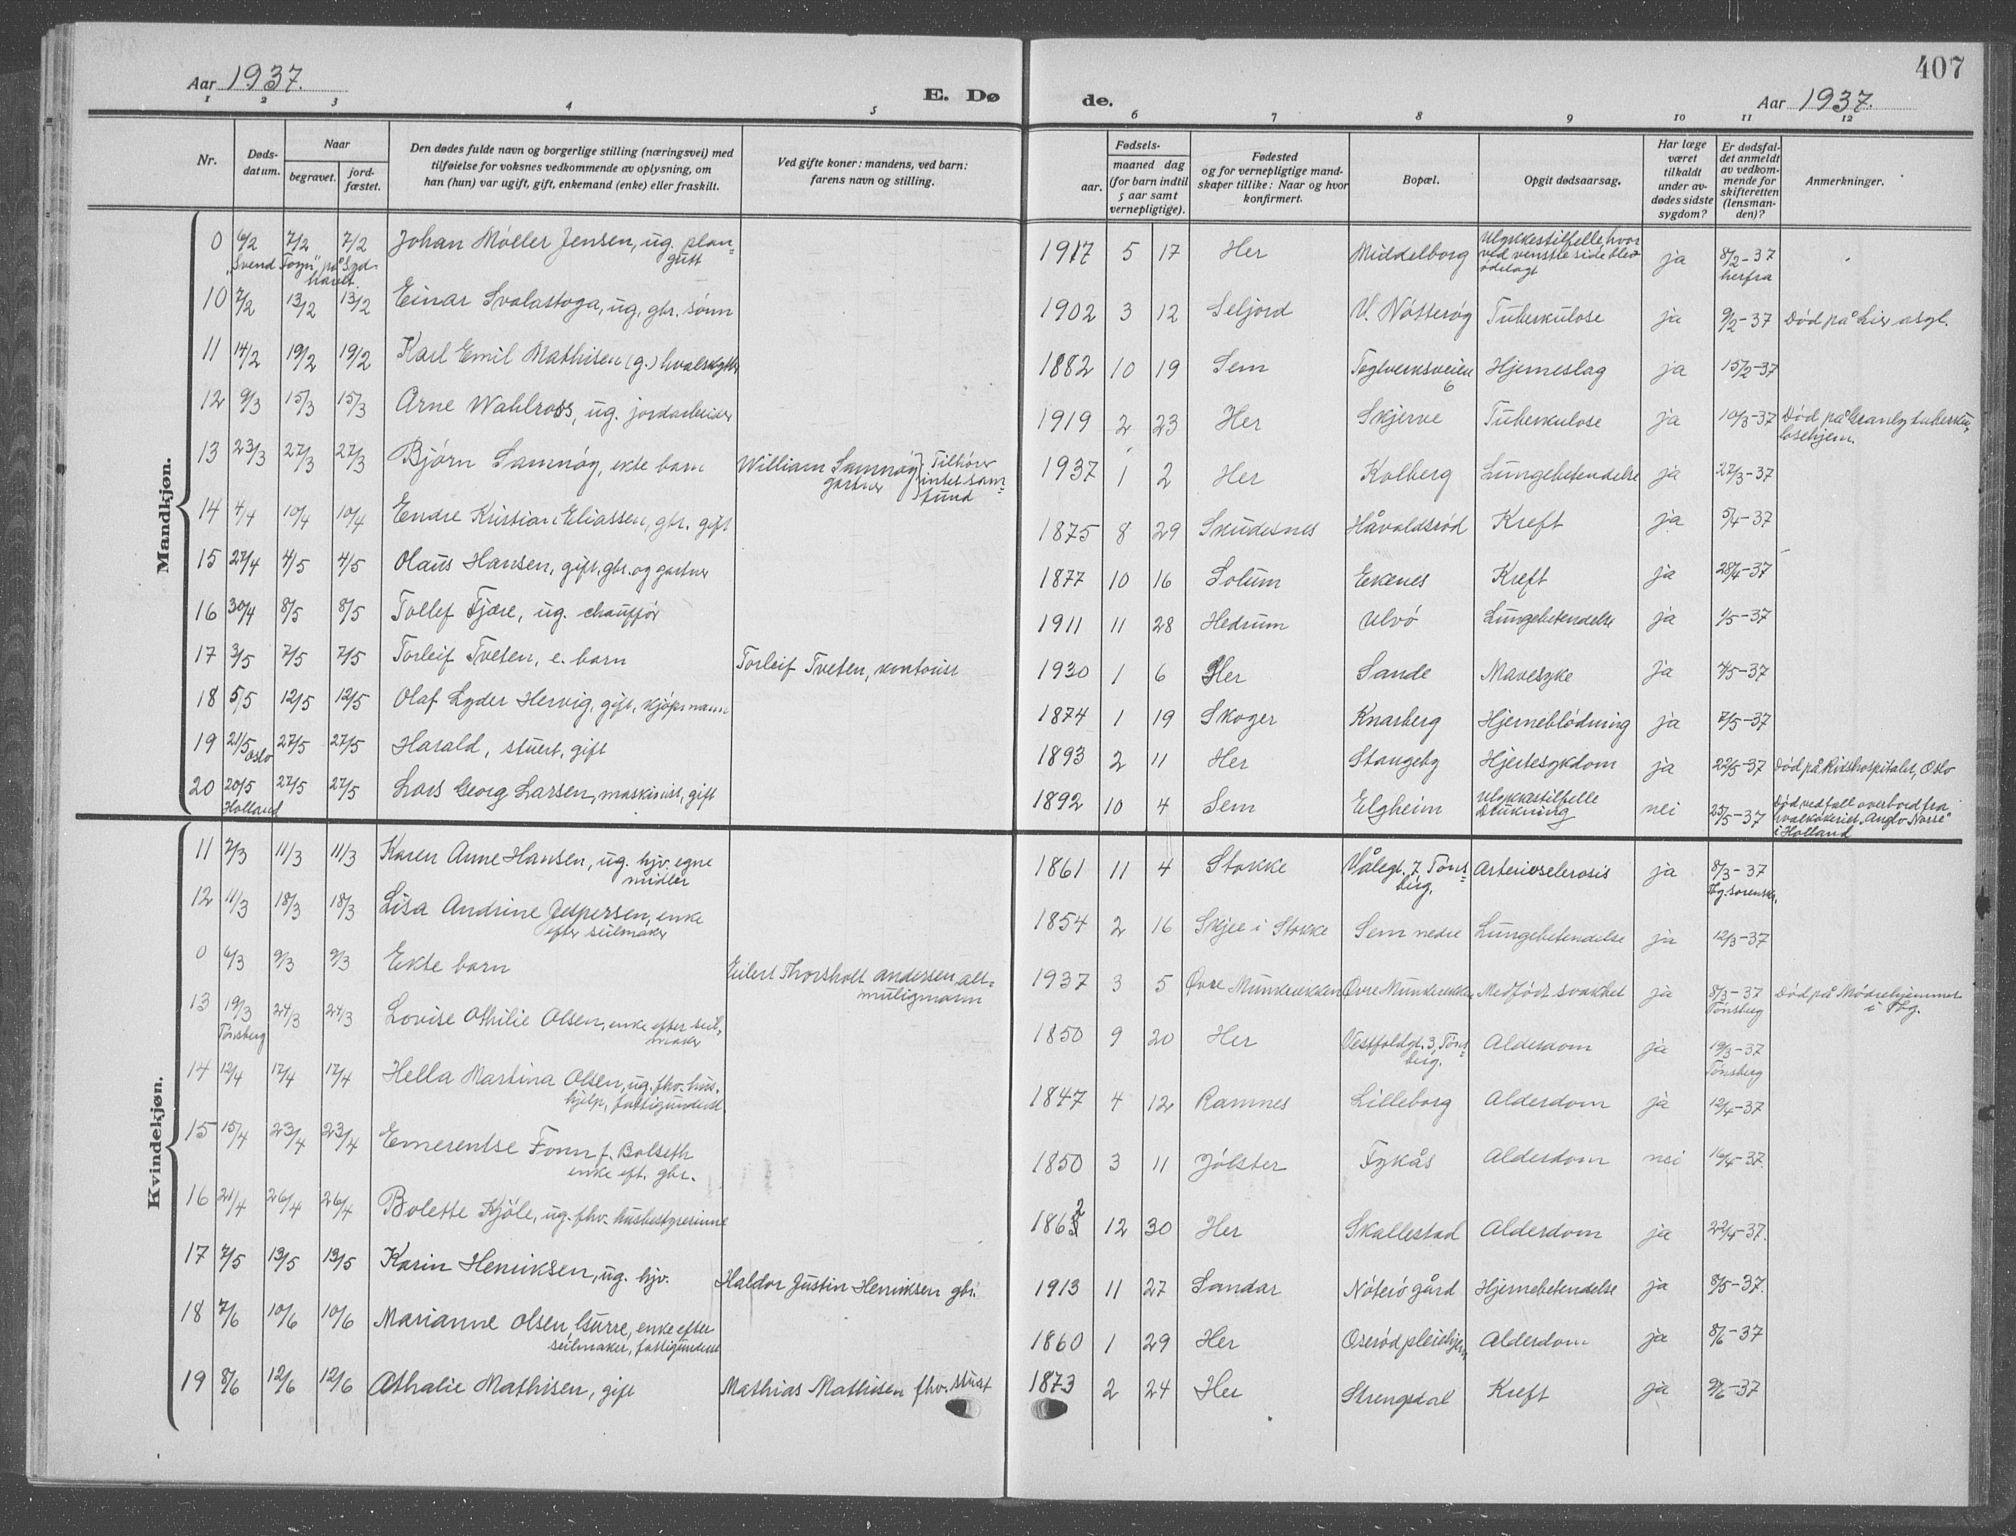 407
Aar 1937. E. Dø de. Aar 1937.
1 2 3 4 5 6 7 8 9 10 11 12
Nr.
Døds-
datum.
Naar
begravet.
jord-
fæstet.
Den dødes fulde navn og borgerlige stilling (næringsvei) med
tilføielse for voksnes vedkommende av oplysning, om
han (hun) var ugift, gift, enkemand (enke) eller fraskilt.
Ved gifte koner: mandens, ved barn:
farens navn og stilling.
Fødsels-
aar.
maaned dag
(for barn indtil
5 aar samt
vernepligtige).
Fødested
og for vernepligtige mand-
skaper tillike: Naar og hvor
konfirmert.
Bopæl.
Opgit dødsaarsag.
Har læge
været
tilkaldt
under av-
dødes sidste
sygdom?
Er dødsfal-
det anmeldt
av vedkom-
mende for
skifteretten
(lensman-
den)?
Anmerkninger.
Mandkjøn.
0 6/2 7/2 7/2 Johan Møller Jensen, ug. plan-
gutt
"Svend Foyn" på Syd-
havet.
1917 5 17 Her Middelborg Ulykkestilfelle, hvor
ved venstre side blev
ødelagt
ja 8/2-37
herfra
10 7/2 13/2 13/2 Einar Svalastoga, ug. gbr. sønn 1902 3 12 Seljord V. Nøtterøy Tuberkulose ja 9/2-37 Død på Lier asyl.
11 14/2 19/2 19/2 Karl Emil Mathisen (g.) hvalskytter 1882 10 19 Sem Teglverksveien
6
Hjerneslag ja 15/2-37
12 9/3 15/3 15/3 Arne Wahlross, ug. jordarbeider 1919 2 23 Her Skjerve Tuberkulose ja 10/3-37 Død på Granly tuberku-
losehjem.
13 23/3 27/3 27/3 Bjørn Samnøy, ekte barn William Samnøy
gartner
Tilhører
intet sam-
fund
1937 1 2 Her Kolberg Lungebetendelse ja 27/3-37
14 4/4 10/4 10/4 Endre Kristian Eliassen, gbr. gift 1875 8 29 Skudesnes Håvaldsrød Kreft ja 5/4-37
15 27/4 4/5 4/5 Olaus Hansen, gift, gbr. og gartner 1877 10 16 Solum Ekenes Kreft ja 28/4-37
16 30/4 8/5 8/5 Tollef Fjære, ug. chauffør 1911 11 28 Hedrum Ulvø Lungebetendelse ja 1/5-37
17 3/5 7/5 7/5 Torleif Tveten, e. barn Torleif Tveten, kontorist 1930 1 6 Her Sande Mavesyke ja 4/5-37
18 5/5 12/5 12/5 Olaf Lyder Hervig, gift, kjøpmann 1874 1 19 Skoger Knarberg Hjerneblødning ja 7/5-37
19 21/5 27/5 27/5 Harald, stuert, gift
Oslo
1893 2 11 Her Stangeby Hjertesykdom ja 22/5-37 Død på Rikshospitalet, Oslo
20 20/5 27/5 27/5 Lars Georg Larsen, maskinist, gift
Holland
1892 10 4 Sem Elgheim Ulykkestilfelle
Drukning
nei 25/5-37 Død ved fall overbord fra
hvalkokeriet "Anglo Norse"
i Holland
Kvindekjøn.
11 7/3 11/3 11/3 Karen Anne Hansen, ug. hjv. egne
midler
1861 11 4 Stokke Vålegt. 7, Tøns-
berg.
Arteriosclerosis ja 8/3-37
Tbg. sorenskr.
12 11/3 18/3 18/3 Lisa Andrine Jespersen, enke
efter seilmaker
1854 2 16 Skjee i Stokke Sem nedre Lungebetendelse ja 12/3-37
0 6/3 9/3 9/3 Ekte barn Eilert Thorsholt Andersen, alt-
muligmann
1937 3 5 Øvre Munkerekken Øvre Munkerekken Medfødt svakhet ja 8/3-37
Tønsberg
Død på Mødrehjemmet
i Tbg.
13 19/3 24/3 24/3 Lovise Othilie Olsen, enke efter seil-
maker
Tønsberg
1850 9 20 Her Vestfoldgt. 3, Tøns-
berg.
Alderdom ja 19/3-37
Tønsberg
14 12/4 17/4 17/4 Hella Martina Olsen, ug. fhv. hus-
hjelp, fattigunderst.
1847 4 12 Ramnes Lilleborg Alderdom ja 12/4-37
15 15/4 23/4 23/4 Emerentse Fonn f. Bolseth
enke eft. gbr.
1850 3 11 Jølster Fykås Alderdom nei 16/4-37
16 21/4 26/4 26/4 Bolette Kjøle, ug. fhv. husbestyrerinne 1862 12 30 Her Skallestad Alderdom ja 22/4-37.
17 7/5 13/5 13/5 Karin Henriksen, ug. hjv. Haldor Justin Henriksen gbr. 1913 11 27 Sandar Nøterø gård Hjernebetendelse ja 8/5-37.
18 7/6 10/6 10/6 Marianne Olsen, Gurre, enke efter
seilmaker, fattigunderst
1860 1 29 Her Oserød pleiehjem Alderdom ja 8/6-37
19 8/6 12/6 12/6 Athalie Mathisen, gift Mathias Mathisen fhv. stuert 1873 2 24 Her Strengsdal Kreft ja 9/6-37